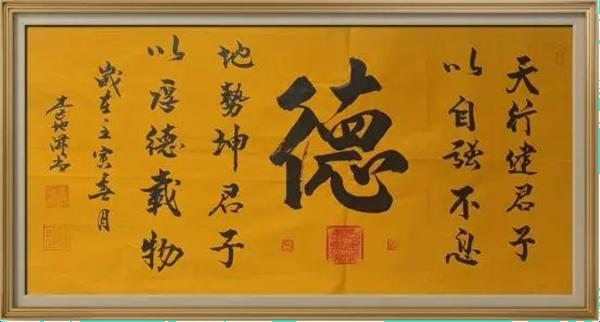 天行健君子
以自强不息
德
地勢坤君子
以厚德載物
歲在壬寅春月